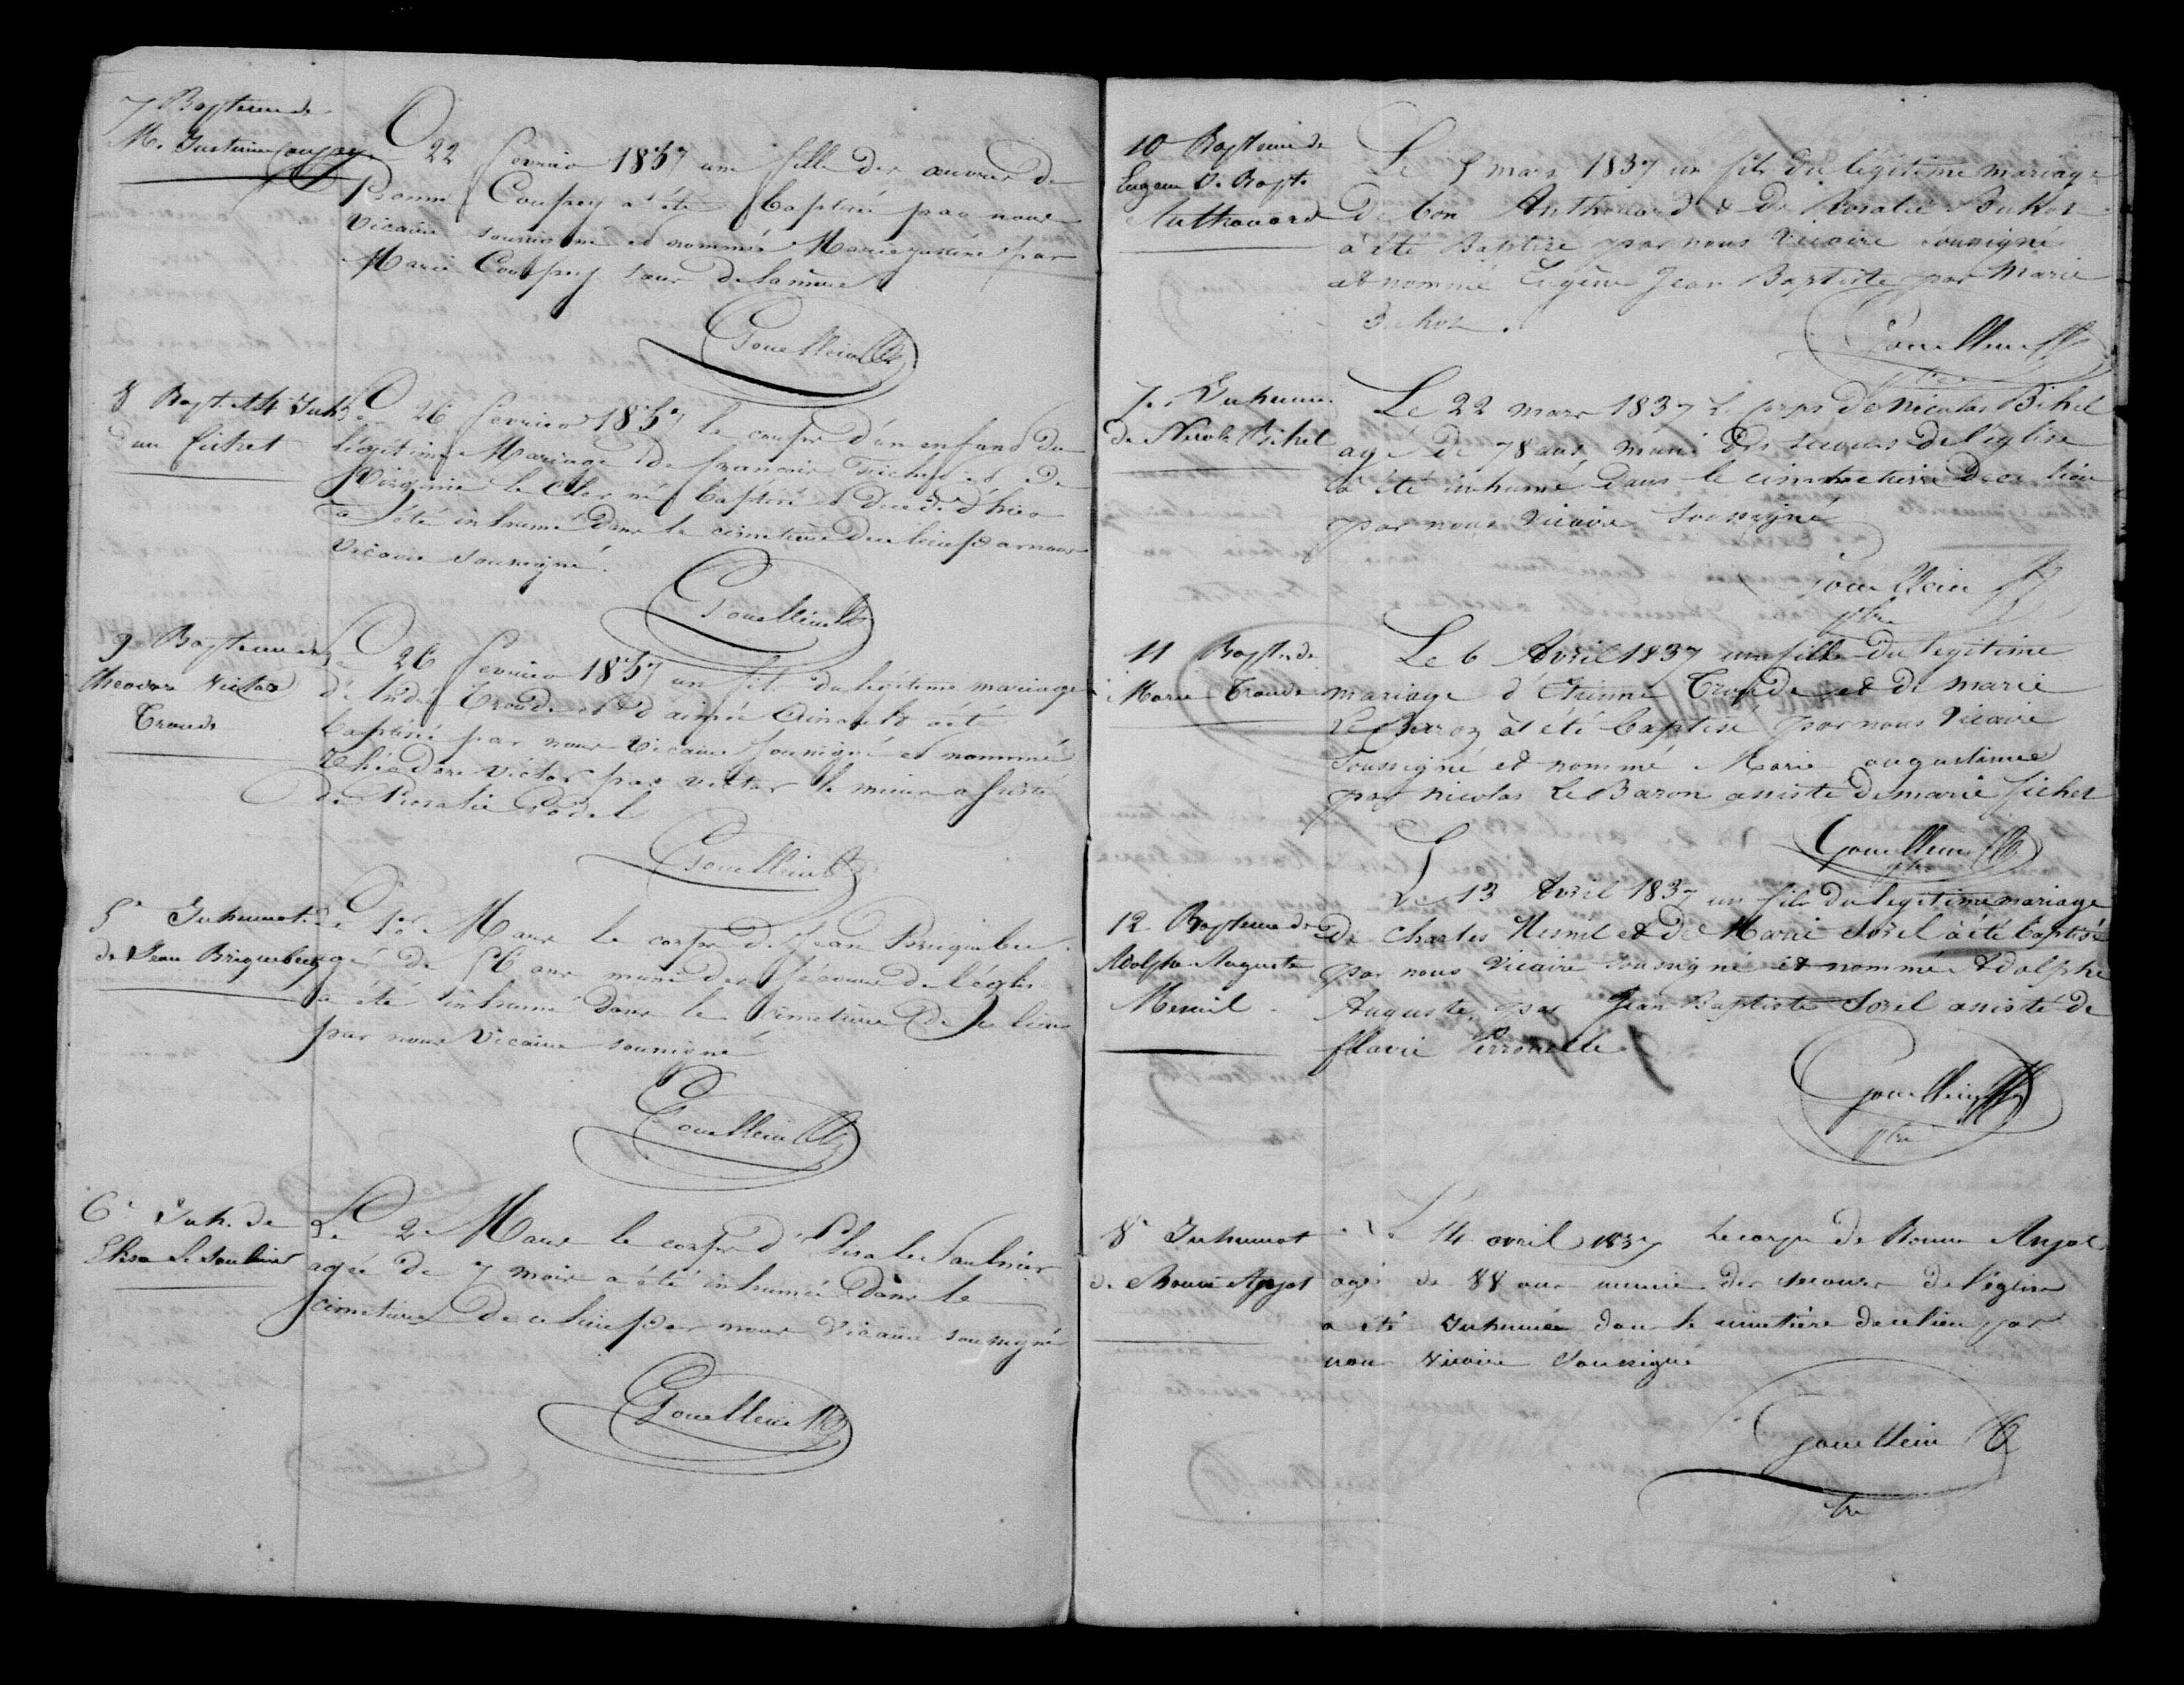 7 Bapteme de
M. Justine Coupey
Le 22 fevrier 1837 une fille des œuvres de
Bonne Coupey a été baptisée par nous
Vicaire soussigné et nommée Marie justine par
Marie Coupey sœur de la mère
Gouelleu
8 Bapt. et 4 Inh.
d'un fichet
Le 26 fevrier 1837 le corps d'un enfant du
légitime Mariage de françois fichet et de
Virginie le Cler né baptisé et décédé d'hier
a été inhumé dans le cimetiere de ce lieu par nous
Vicaire soussigné.
Gouelleu
9 Bapteme de
theodore Victor
Troude
Le 26 fevrier 1837 un fils du légitime mariage
d'André Troude et d'aimée a été
baptisé par nous Vicaire soussigné et nommé
théodore Victor par victor le
de Rosalie Godel
Gouelleu
5e Inhumat.
de Jean Briquebec
Le 1er Mars le corps de Jean Briquebec
agé de 56 ans muni des secours de l'église
a été inhumé dans le cimetiere de ce lieu
par nous Vicaire soussigné
Gouelleu
6e Inh. de
Elisa Le Saulnier
Le 2 Mars le corps d'Elisa le Saulnier
agée de 7 mois a été inhumée dans le
cimetiere de ce lieu par nous Vicaire soussigné
Gouelleu
10 Bapteme de
Eugene J. Bapt.
Anthouard
Le 5 mars 1837 un fils du légitime mariage
de bon Anthouard & de Rosalie Buhot
a été Baptisé par nous Vicaire soussigné
et nommé Eugène Jean Baptiste par Marie
Buhot.
Gouelleu
ptre
7e Inhum.
de Nicolas Bihel
Le 22 mars 1837 le corps de Nicolas Bihel
agé de 78 ans, muni des secours de l'église
a été inhumé dans le cimmetierre de ce lieu
par nous Vicaire soussigné
Gouelleu
ptre
11 Bapt. de
Marie Troude
Le 6 Avril 1837 une fille du légitime
mariage d'Etienne Troude et de marie
Le a été baptisé par nous Vicaire
soussigné et nommé Marie augustine
par nicolas Le Baron assisté de marie fichet
Gouelleu
ptre
12 Bapteme de
Adolphe Auguste
Mesnil
Le 13 Avril 1837 un fils du légitime mariage
de Charles Mesnil et de Marie Sorel a été baptisé
par nous Vicaire soussigné et nommé Adolphe
Auguste, par Jean Baptiste Sorel assisté de
fflavie Perronelle
Gouelleu
ptre
8e Inhumat
de Bonne Anjot
Le 14 avril 1837 Le corps de Bonne Anjot
agé de 88 ans munie des secours de l'église
a été Inhumée dans le cimetière de ce lieu par
nous Vicaire Soussigné
Gouelleu
ptre